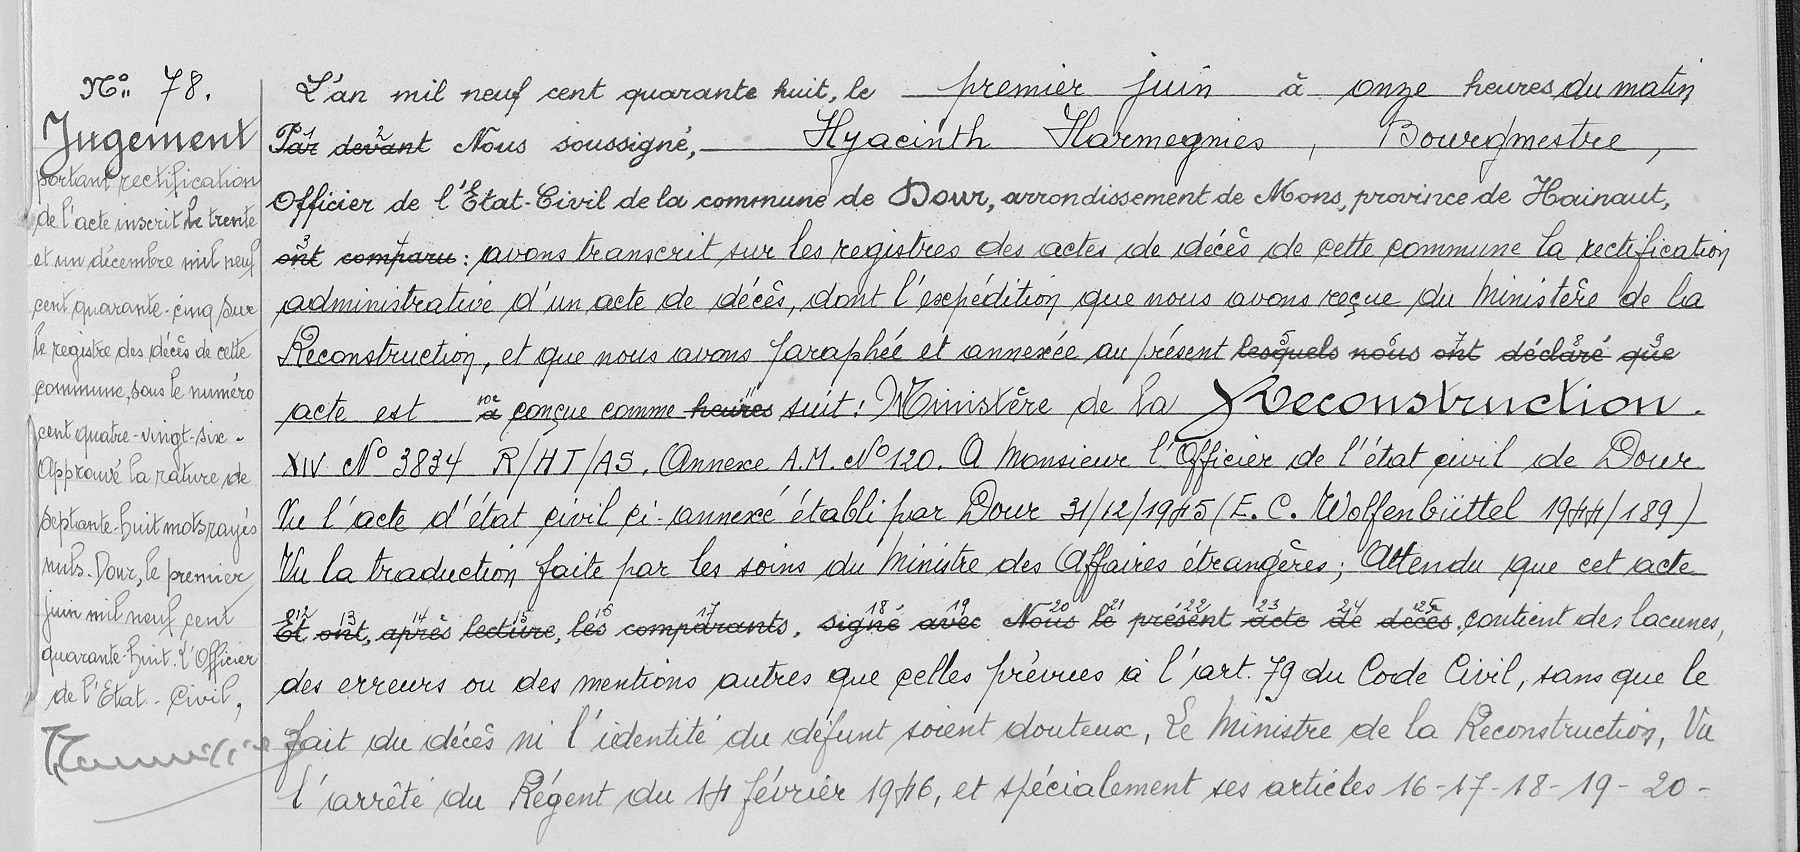 N° 78.
Jugement
portant rectification
de l'acte inscrit le trente
et un décembre mil neuf
cent quarante-cinq sur
le registre des décès de cette
commune, sous le numéro
cent quatre-vingt-six.
Approuvé la rature de
septante-huit mots rayés
nuls. Dour, le premier
juin mil neuf cent
quarante-huit. L'Officier
de l'Etat-Civil,
L'an mil neuf cent quarante huit, le premier juin à onze heures du matin
Par devant Nous soussigné, Hyacinth Harmegnies, Bourgmestre,
Officier de l'Etat-Civil de la commune de Dour, arrondissement de Mons, province de Hainaut,
ont comparu : avons transcrit sur les registres des actes de décès de cette commune la rectification
administrative d'un acte de décès, dont l'expédition que nous avons reçue du Ministère de la
Reconstruction, et que nous avons paraphée et annexée au présent lesquels nous ont déclaré que
acte est a conçue comme heures suit : Ministère de la Reconstruction.
XIV N° 3834 R/HT/AS. Annexe A.M. N° 120. A Monsieur l'Officier de l'état civil de Dour
Vu l'acte d'état civil ci-annexé établi par Dour 31/12/1945 (E. C. Wolfenbüttel 1944/189)
Vu la traduction faite par les soins du Ministre des Affaires étrangères ; Attendu que cet acte
Et ont, après lecture, les comparants, signé avec Nous le présent acte de décès, contient des lacunes,
des erreurs ou des mentions autres que celles prévues à l'art. 79 du Code Civil, sans que le
fait du décès ni l'identité du défunt soient douteux, Le Ministre de la Reconstruction, Vu
l'arrêté du Régent du 14 février 1946, et spécialement ses articles 16-17-18-19-20-